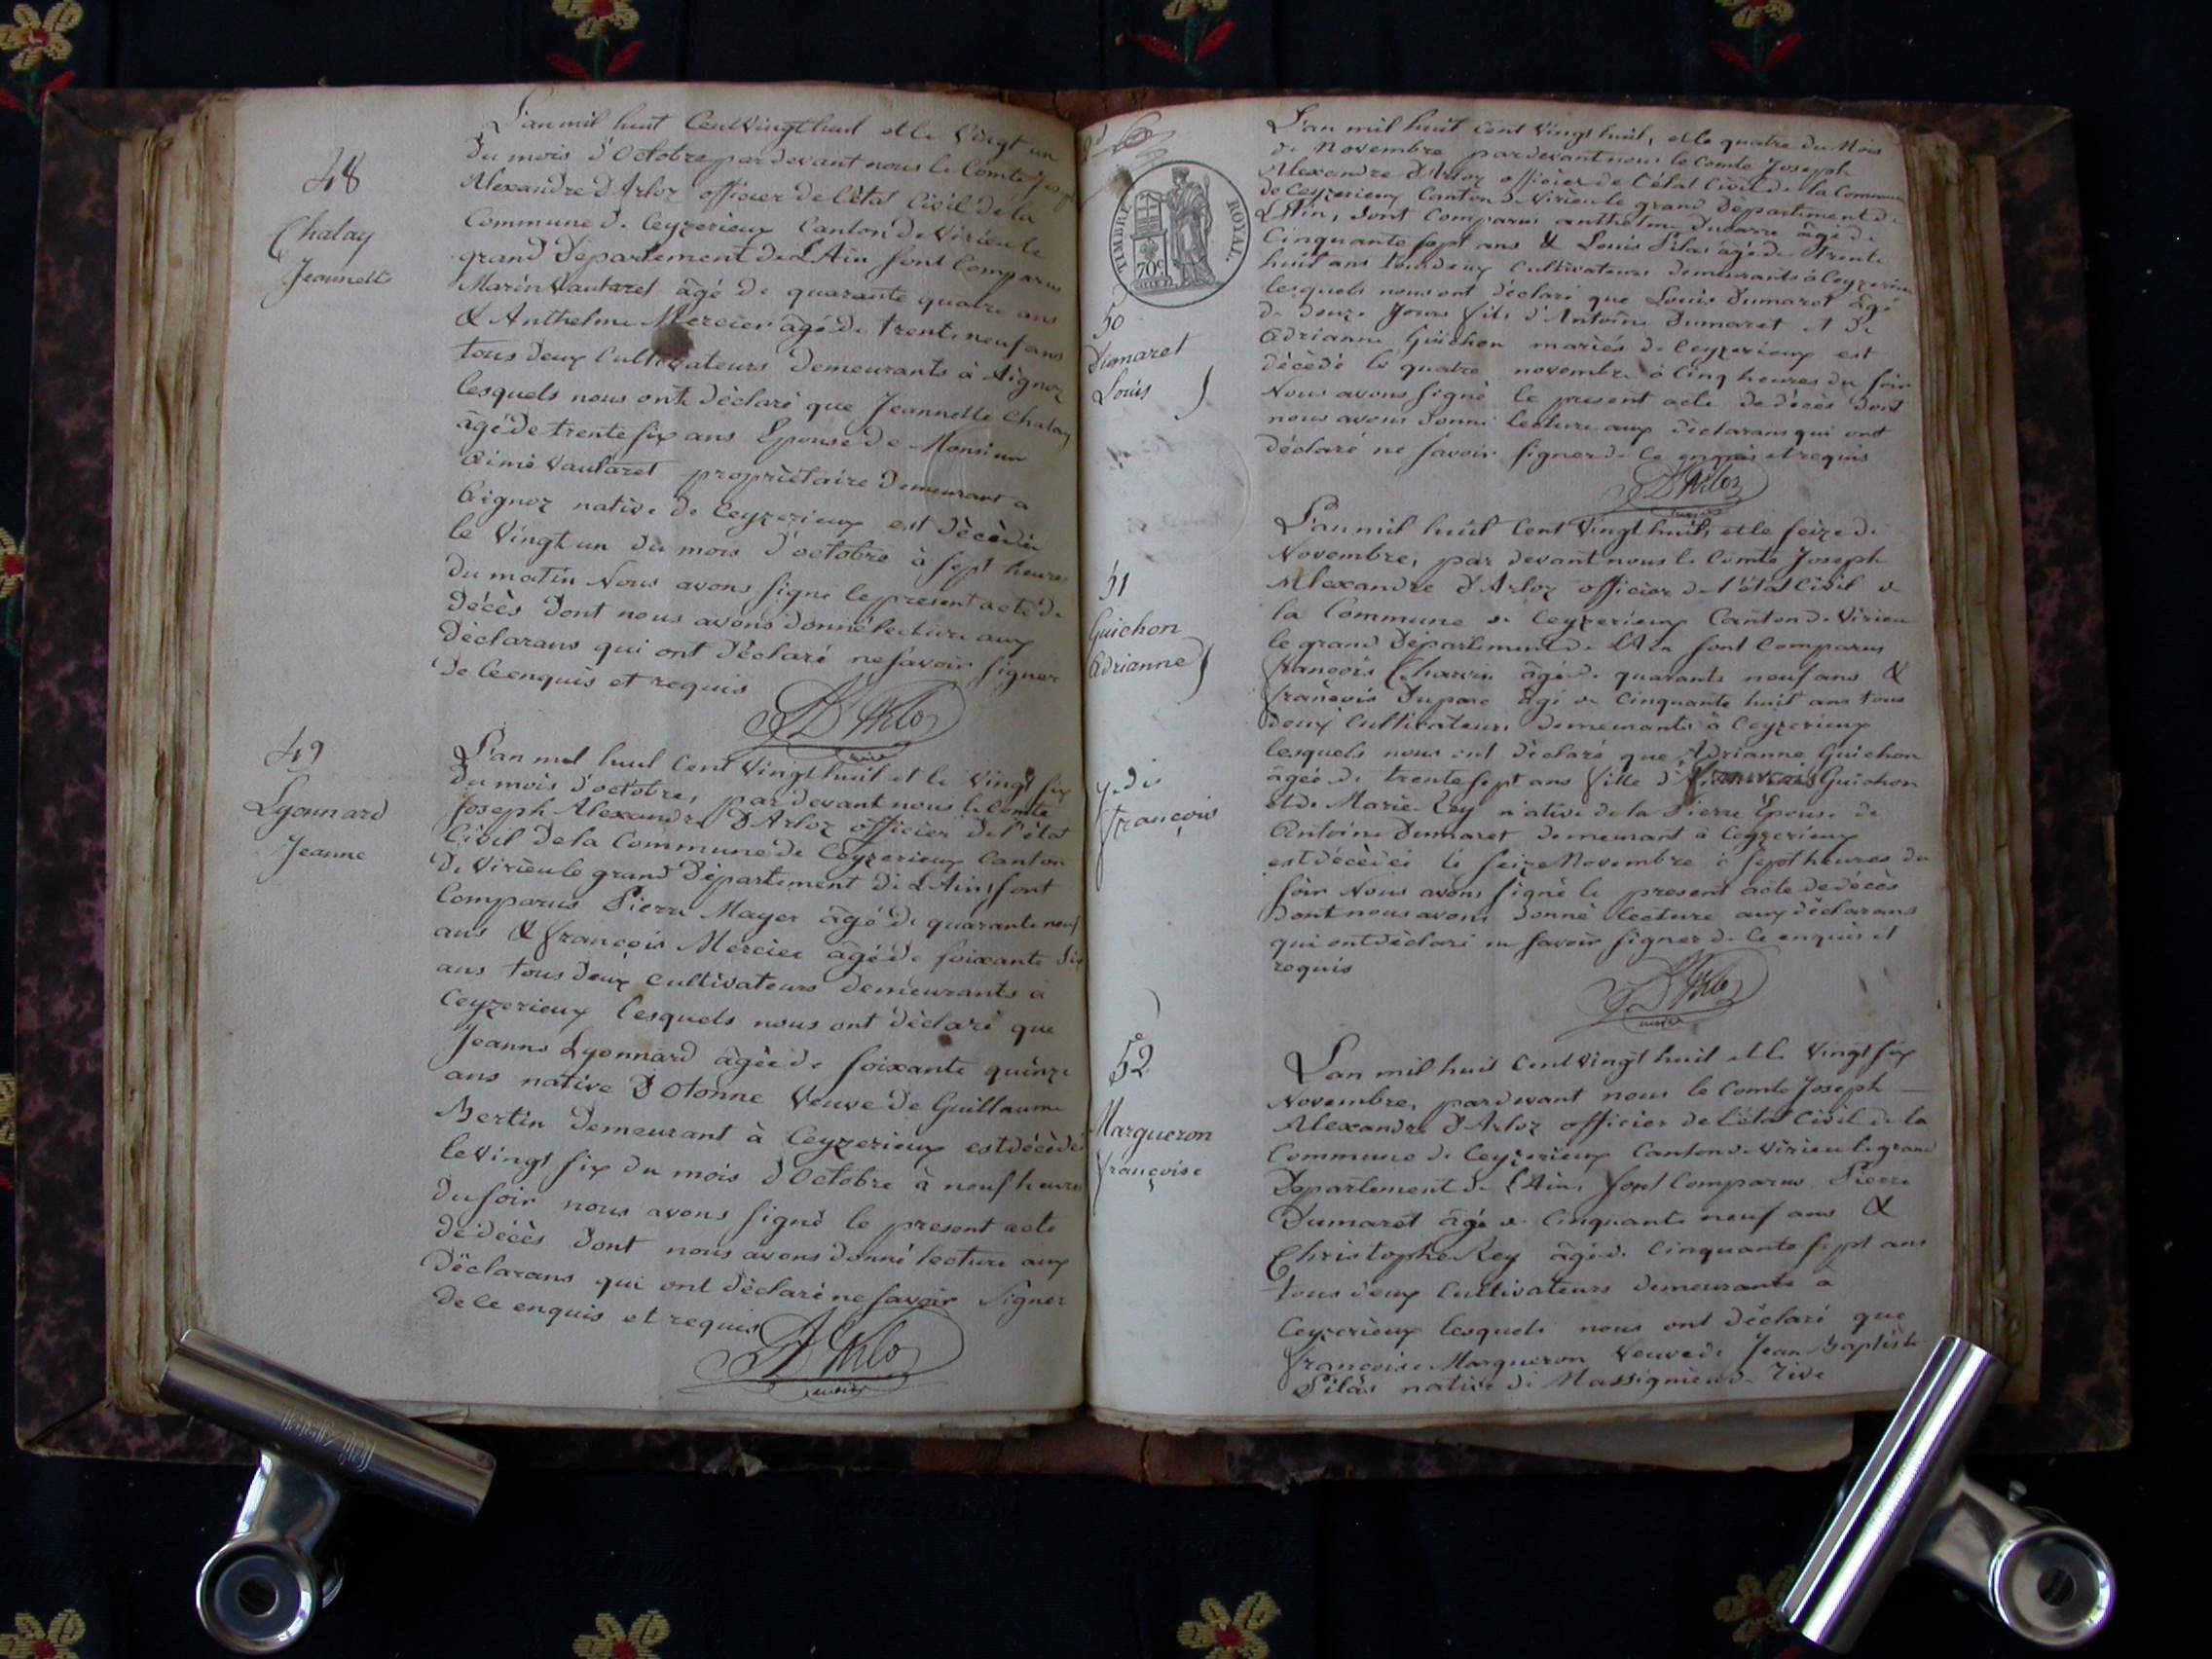 48
Chalay
Jeannette
L'an mil huit Cent Vingt huit et le Vingt un
Du mois D'Octobre par devant nous le Comte Joseph
Alexandre D'Arloz officier de l'état Civil de la
Commune De Ceyzerieux Canton De Virieu le
grand Département De L'Ain sont Comparus
Marin Vautaret âgé De quarante quatre ans
& Anthelme Mercier âgé De trente neuf ans
tous deux Cultivateurs Demeurants à Aignoz
lesquels nous ont Déclaré que Jeannette Chalay
âgé De trente six ans Epouse De Monsieur
Aimé Vautaret propriètaire Demeurant a
Aignoz native De Ceyzerieux est Décèdée
le Vingt un du mois D'octobre à sept heures
Du matin Nous avons signé le present acte De
Décès Dont nous avons Donné lecture aux
Déclarans qui ont Déclaré ne savoir signer
De Ce enquis et requis
D'Arloz
49
Lyonnard
Jeanne
L'an mil huit Cent Vingt huit et le Vingt six
Du mois D'octobre, par devant nous le Comte
Joseph Alexandre D'Arloz officier De l'état
Civil De la Commune De Ceyzerieux Canton
De Virieu le grand Département De L'Ain, sont
Comparus Pierre Mayer âgé De quarante neuf
ans & françois Mercier âgé De soixante six
ans tous Deux Cultivateurs Demeurants a
Ceyzerieux lesquels nous ont Déclaré que
Jeanne Lyonnard âgée De soixante quinze
ans native D'Otonne Veuve De Guillaume
Bertin Demeurant à Ceyzerieux est décèdée
le Vingt six Du mois D'Octobre à neuf heures
Du soir nous avons signé le present acte
De décès Dont nous avons Donné lecture aux
Déclarans qui ont Déclaré ne savoir Signer
De Ce enquis et requis
D'Arloz
TIMBRE ROYAL.
70c
50
Dumaret
Louis
L'an mil huit Cent Vingt huit, et le quatre du Mois
de Novembre par devant nous le Comte Joseph
Alexandre D'Arloz officier de l'état Civil de la Commune
de Ceyzerieux Canton De Virieu le grand Département De
L'Ain, sont Comparus anthelme Ducarre âgé De
Cinquante sept ans & Louis Pilas âgé De trente
huit ans tous deux Cultivateurs Demeurants à Ceyzerieux
lesquels nous ont Déclaré que Louis Dumaret âgé
De Douze Jours fils D'Antoine Dumaret et De
Adrianne Guichon mariés De Ceyzerieux est
décèdé le quatre novembre à Cinq heures du soir
Nous avons signé le present acte De décès Dont
nous avons Donné lecture aux Déclarans qui ont
Déclaré ne savoir signer De Ce enquis et requis
D'Arloz
51
Guichon
Adrianne
L'an mil huit Cent Vingt huit, et le seize De
Novembre, par devant nous le Comte Joseph
Alexandre D'Arloz officier De l'état Civil De
la Commune De Ceyzerieux Canton De Virieu
le grand Département De L'Ain sont Comparus
françois Charvin âgé De quarante neuf ans &
françois Duparc âgé De Cinquante huit ans tous
Deux Cultivateurs Demeurants à Ceyzerieux
lesquels nous ont Déclaré que Adrianne Guichon
âgée De trente sept ans fille D' françois Guichon
et De Marie Rey native de la Pierre Épouse De
Antoine Dumaret Demeurant à Ceyzerieux
est décèdée le seize Novembre à sept heures Du
soir Nous avons signé le present acte De décès
Dont nous avons Donné lecture aux Déclarans
qui ont Déclaré ne savoir signer De Ce enquis et
requis
D'Arloz
françois
52
Margueron
françoise
L'an mil huit Cent Vingt huit et le Vingt six
Novembre, par devant nous le Comte Joseph
Alexandre D'Arloz officier De l'état Civil De la
Commune De Ceyzerieux Canton De Virieu le grand
Département De L'Ain, sont Comparus Pierre
Dumaret âgé De Cinquante neuf ans &
Christophe Rey âgé De Cinquante sept ans
tous Deux Cultivateurs Demeurants à
Ceyzerieux lesquels nous ont Déclaré que
françoise Margueron Veuve De Jean Baptiste
Pilas native De Massignieu De Rive